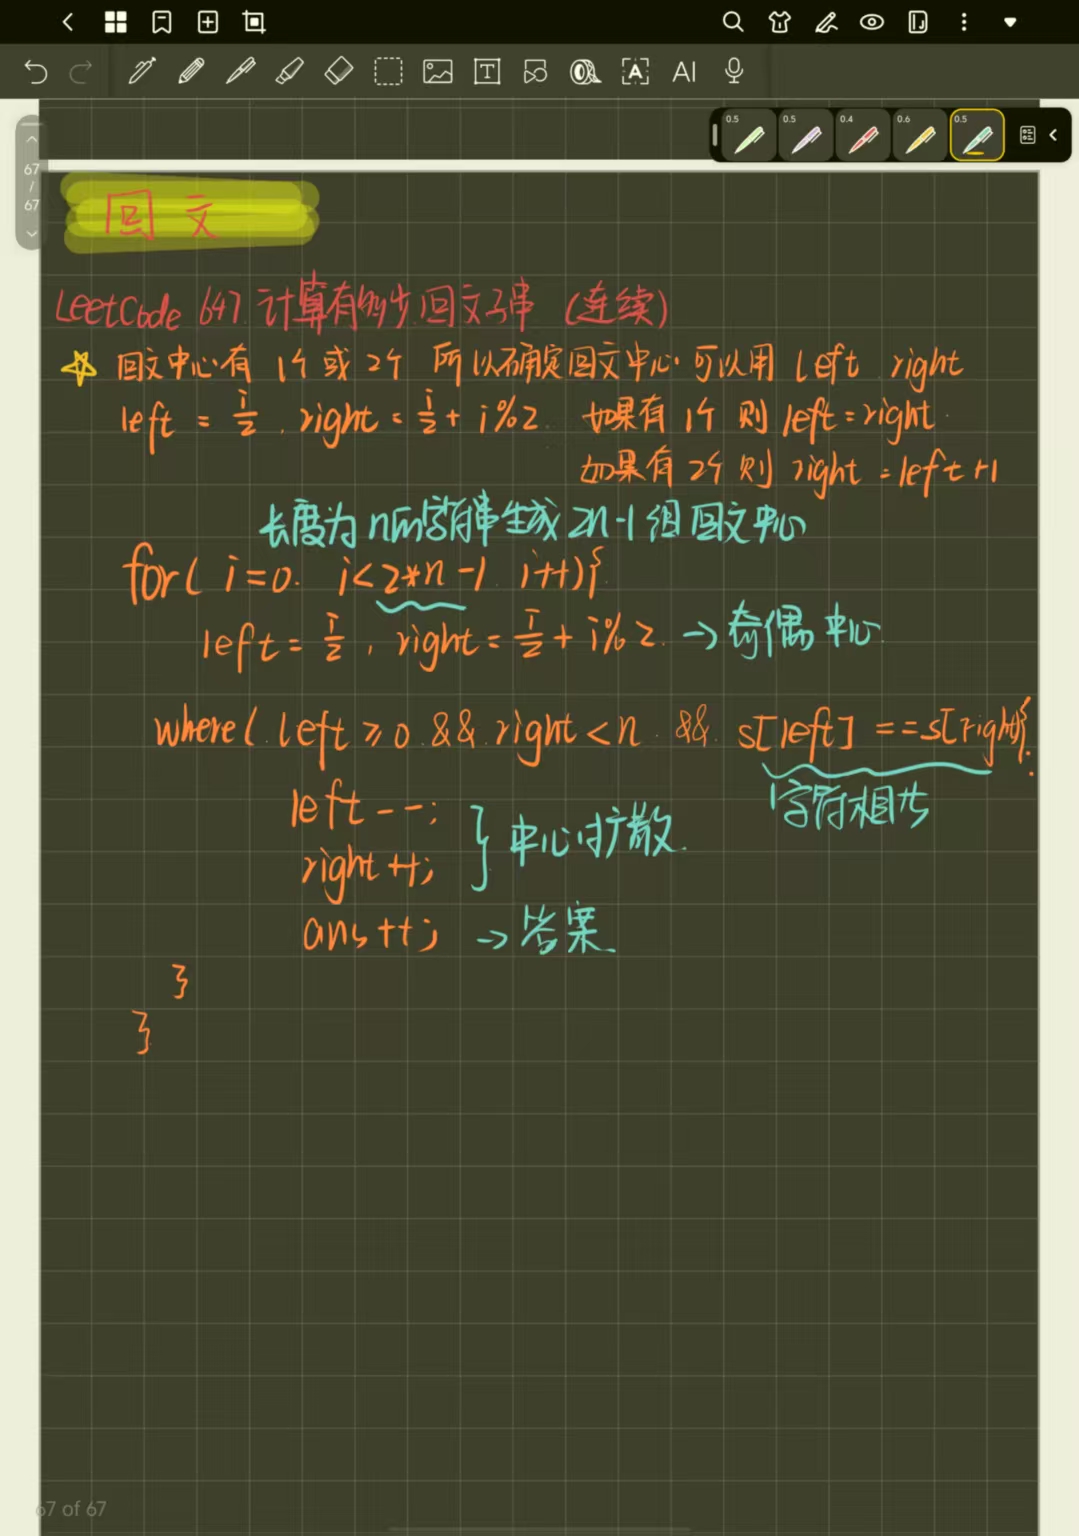 0.5 0.5 0.4 0.6 0.5
T A AI
67
/
67
回文
LeetCode 647. 计算有多少回文子串 (连续)
回文中心有 1个 或 2个 所以确定回文中心可以用 left right
left = i/2 , right = i/2 + i%2. 如果有 1个 则 left = right.
如果有 2个 则 right = left+1
长度为n的字符串生成 2n-1 组回文中心
for( i=0. i<2*n-1. i++){
left = i/2 , right = i/2 + i%2. → 奇偶中心.
where( left ≥ 0 && right < n && s[left] == s[right]){
字符相等
left--;
right++;
} 中心扩散.
ans++; → 答案.
}
}
67 of 67